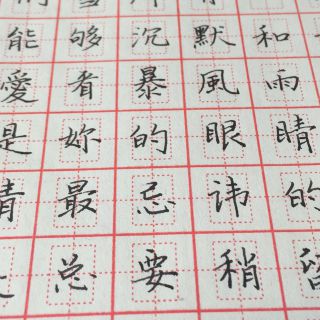 能够沉默和
愛看暴風雨
是妳的眼睛
情最忌讳的
总要稍留